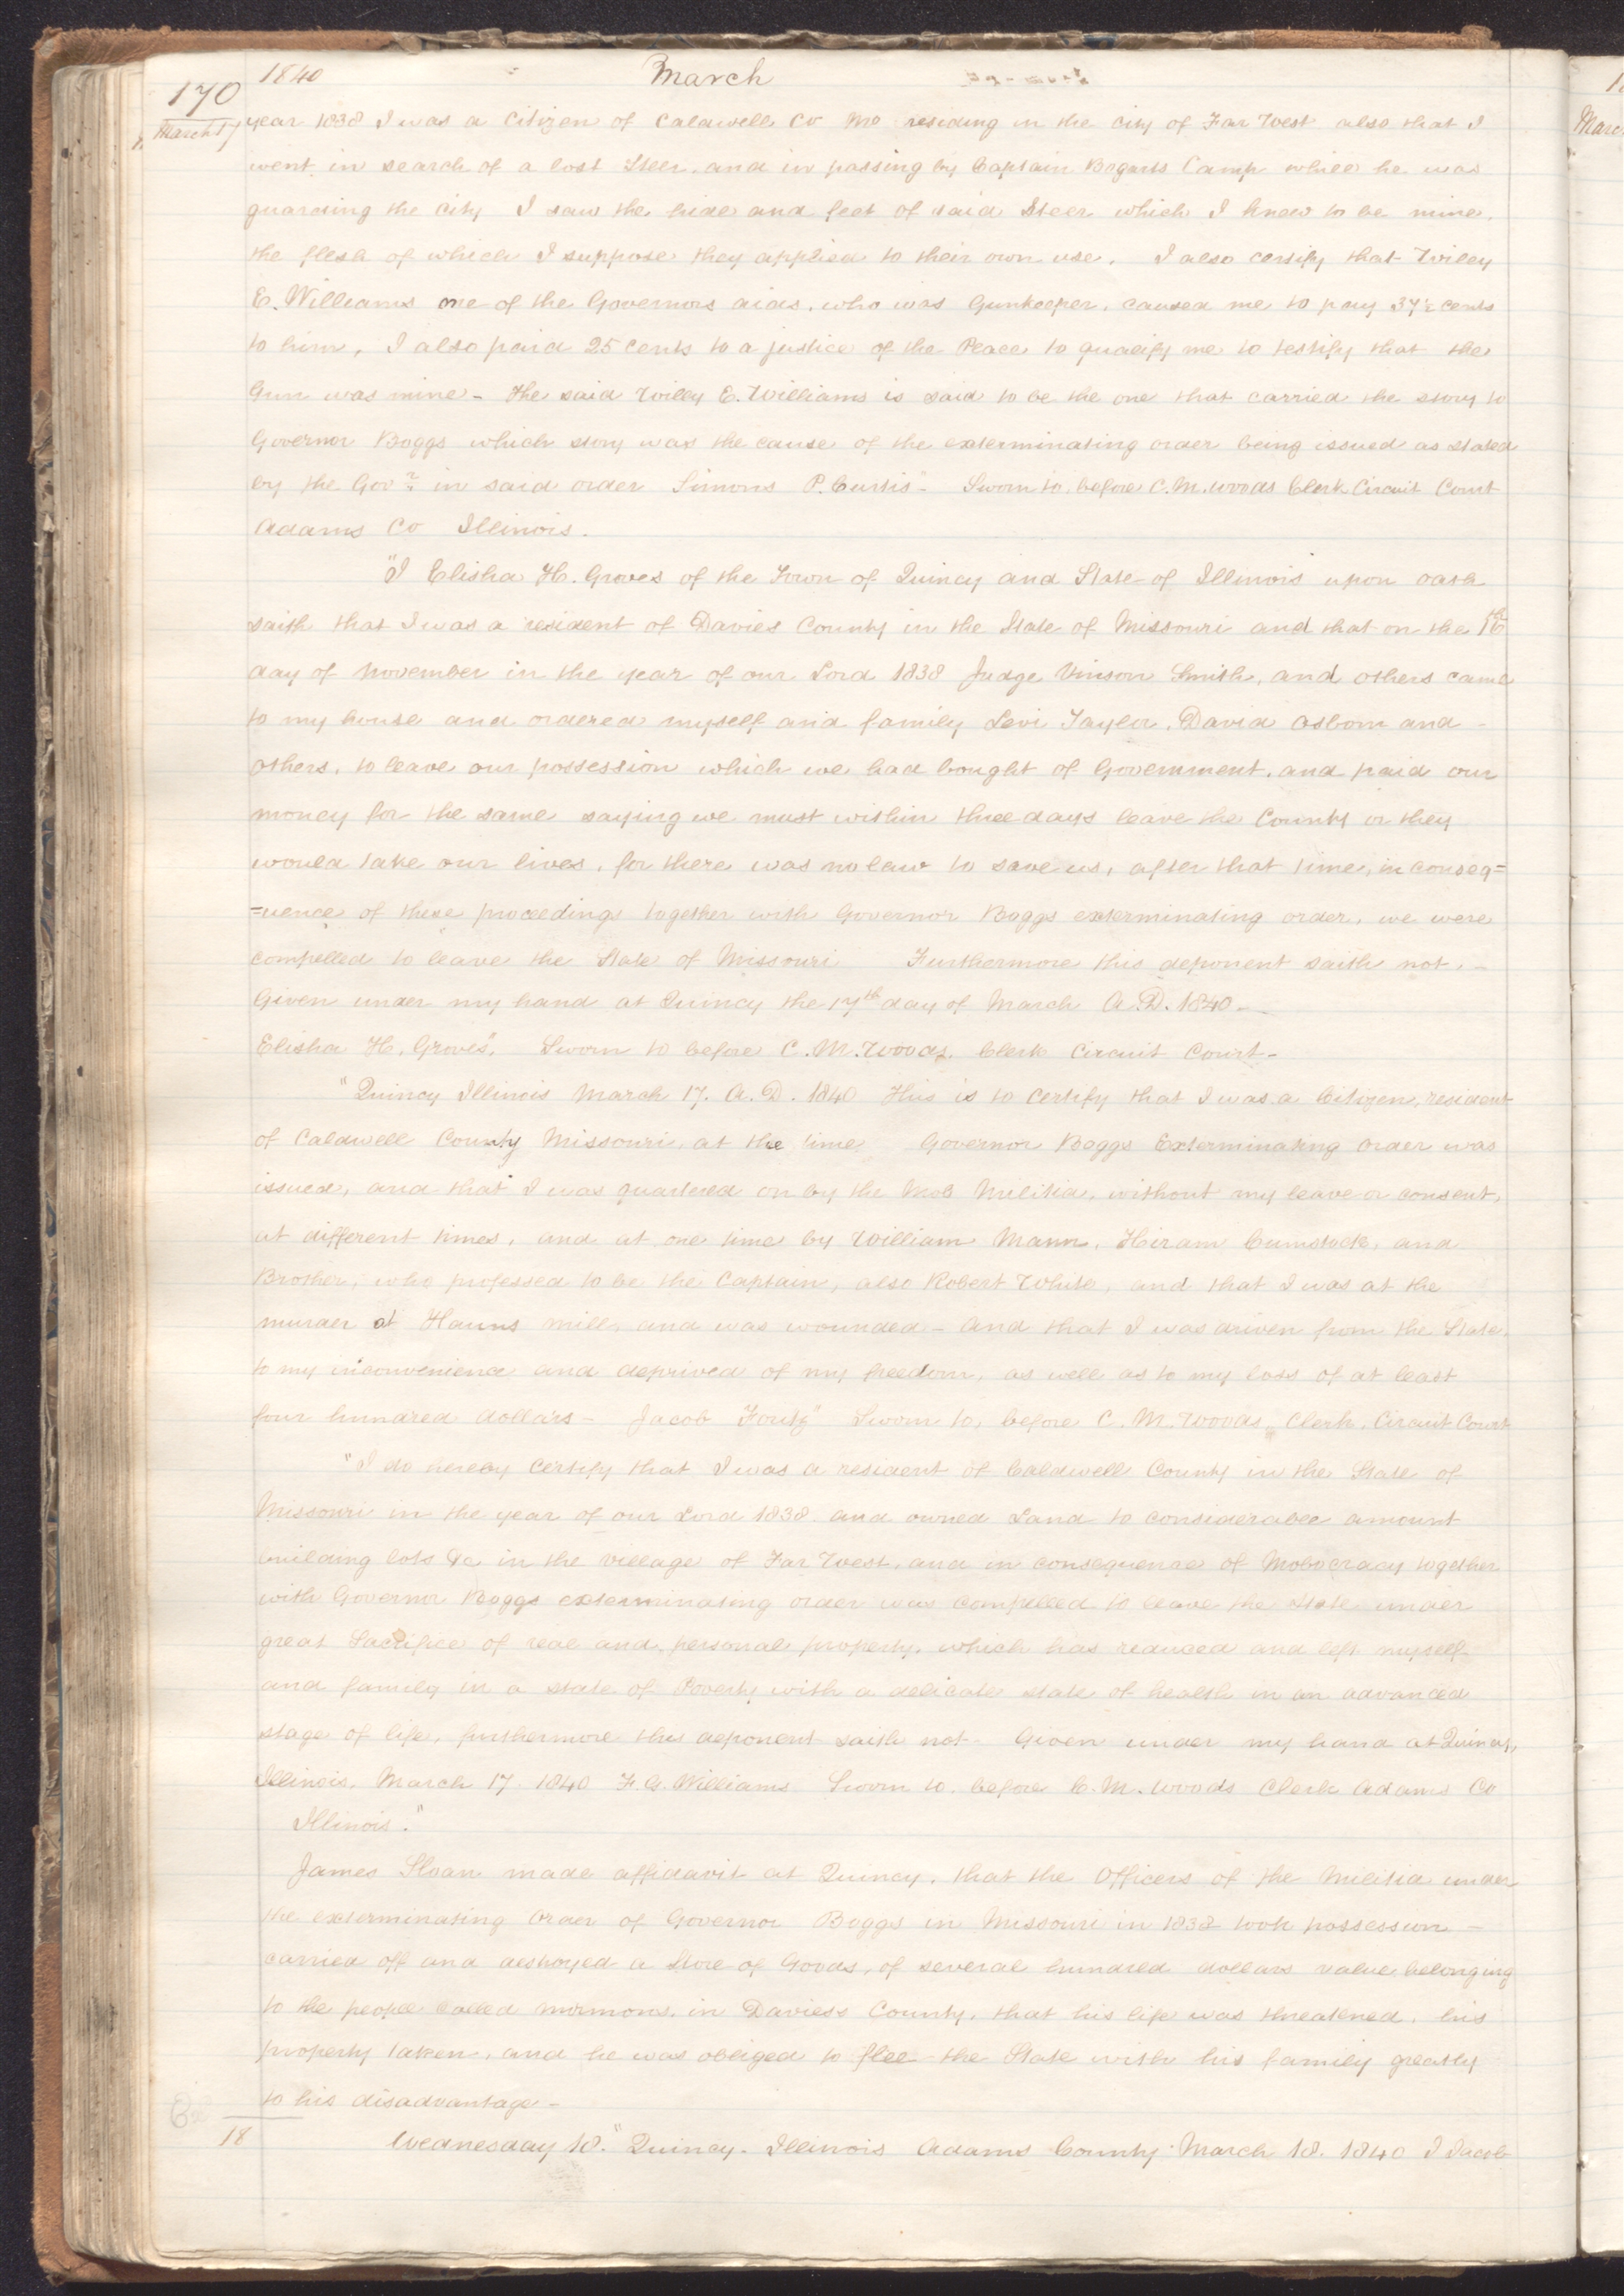 170
1840 March
March 17
year 1838 I was a Citizen of Caldwell Co Mo residing in the City of Far West also that I
went in search of a lost Steer, and in passing by Captain Bogarts Camp while he was
guarding the City I saw the hide and feet of said Steer which I knew to be mine,
the flesh of which I suppose they applied to their own use. I also certify that Wiley
E. Williams one of the Governors aids, who was Gunkeeper, caused me to pay 37½ cents
to him, I also paid 25 Cents to a justice of the Peace to qualify me to testify that the
Gun was mine - the said Willey E. Williams is said to be the one that carried the story to
Governor Boggs which story was the cause of the exterminating order being issued as stated
by the Govr. in said order Simons P. Curtis" - Sworn to, before C. M. Woods Clerk Circuit Court
Adams Co Illinois.
"I Elisha H. Groves of the Town of Quincy and State of Illinois upon oath
saith that I was a resident of Davies County in the State of Missouri and that on the 16th
day of November in the year of our Lord 1838 Judge Vinson Smith, and others came
to my house and ordered myself and family Levi Taylor, David Osborn and -
others, to leave our possession which we had bought of Government, and paid our
money for the same saying we must within three days leave the County or they
would take our lives, for there was no law to save us, after that time, in conseq=
=uence of these proceedings together with Governor Boggs exterminating order, we were
compelled to leave the State of Missouri Furthermore this deponent saith not. -
Given under my hand at Quincy the 17th day of March A.D. 1840 -
Elisha H. Groves", Sworn to before C. M. Woods. Clerk Circuit Court -
"Quincy Illinois March 17. A.D. 1840 This is to certify that I was a Citizen, resident
of Caldwell County Missouri, at the time Governor Boggs Exterminating order was
issued, and that I was quartered on by the Mob Militia, without my leave or consent,
at different times, and at one time by William Mann, Hiram Cumstock, and
Brother, who professed to be the Captain, also Robert White, and that I was at the
murder at Hauns mill, and was wounded - and that I was driven from the State,
to my inconvenience and deprived of my freedom, as well as to my loss of at least
four hundred dollars - Jacob Foutz" Sworn to, before C. M. Woods, Clerk, Circuit Court
"I do hereby Certify that I was a resident of Caldwell County in the State of
Missouri in the year of our Lord 1838 and owned Land to considerable amount
building lots &c in the village of Far West, and in consequence of Mobocracy together
with Governor Boggs exterminating order was compelled to leave the State under
great Sacrifice of real and personal property, which has reduced and left myself
and family in a state of Poverty with a delicate state of health in an advanced
stage of life, furthermore this deponent saith not - Given under my hand at Quincy,
Illinois. March 17. 1840 F. G. Williams Sworn to, before C. M. Woods Clerk Adams Co
Illinois."
James Sloan made affidavit at Quincy, that the Officers of the Militia under
the exterminating order of Governor Boggs in Missouri in 1838 took possession -
carried off and destroyed a Store of Goods, of several hundred dollars value belonging
to the people Called Mormons, in Daviess County, that his life was threatened, his
property taken, and he was obliged to flee the State with his family greatly
to his disadvantage -
18
Wednesday 18. "Quincy. Illinois Adams County March 18. 1840 I Jacob